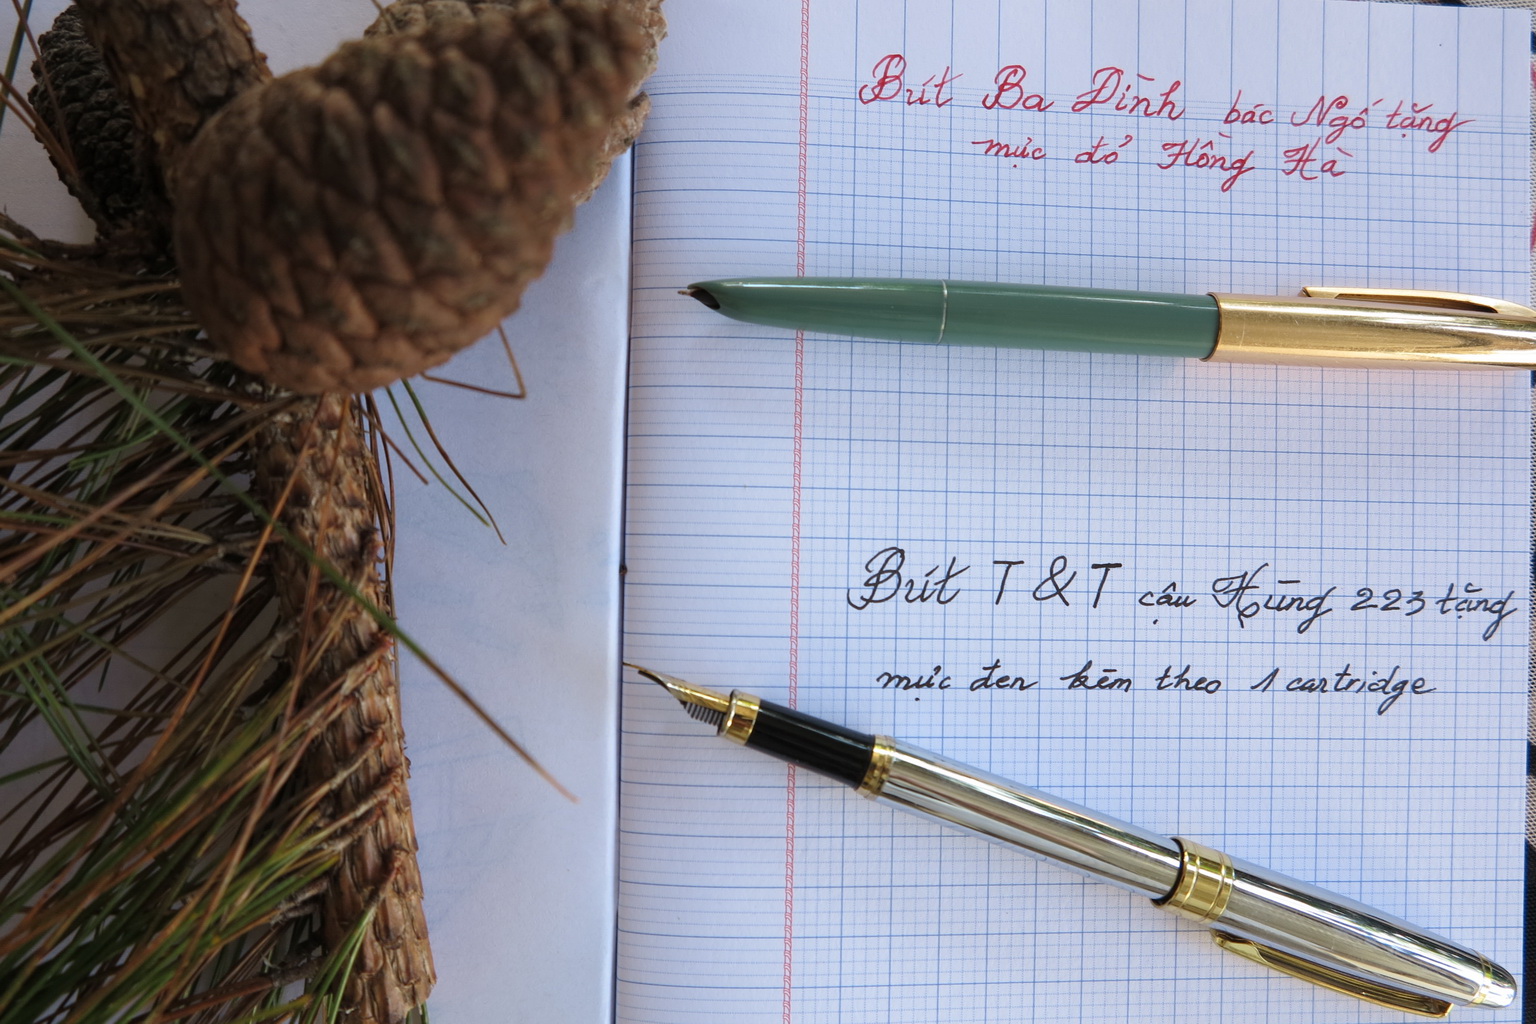 Bút Ba Đình bác Ngố tặng
mực đỏ Hồng Hà
Bút T & T cậu Hùng 223 tặng
mực đen kèm theo 1 cartridge